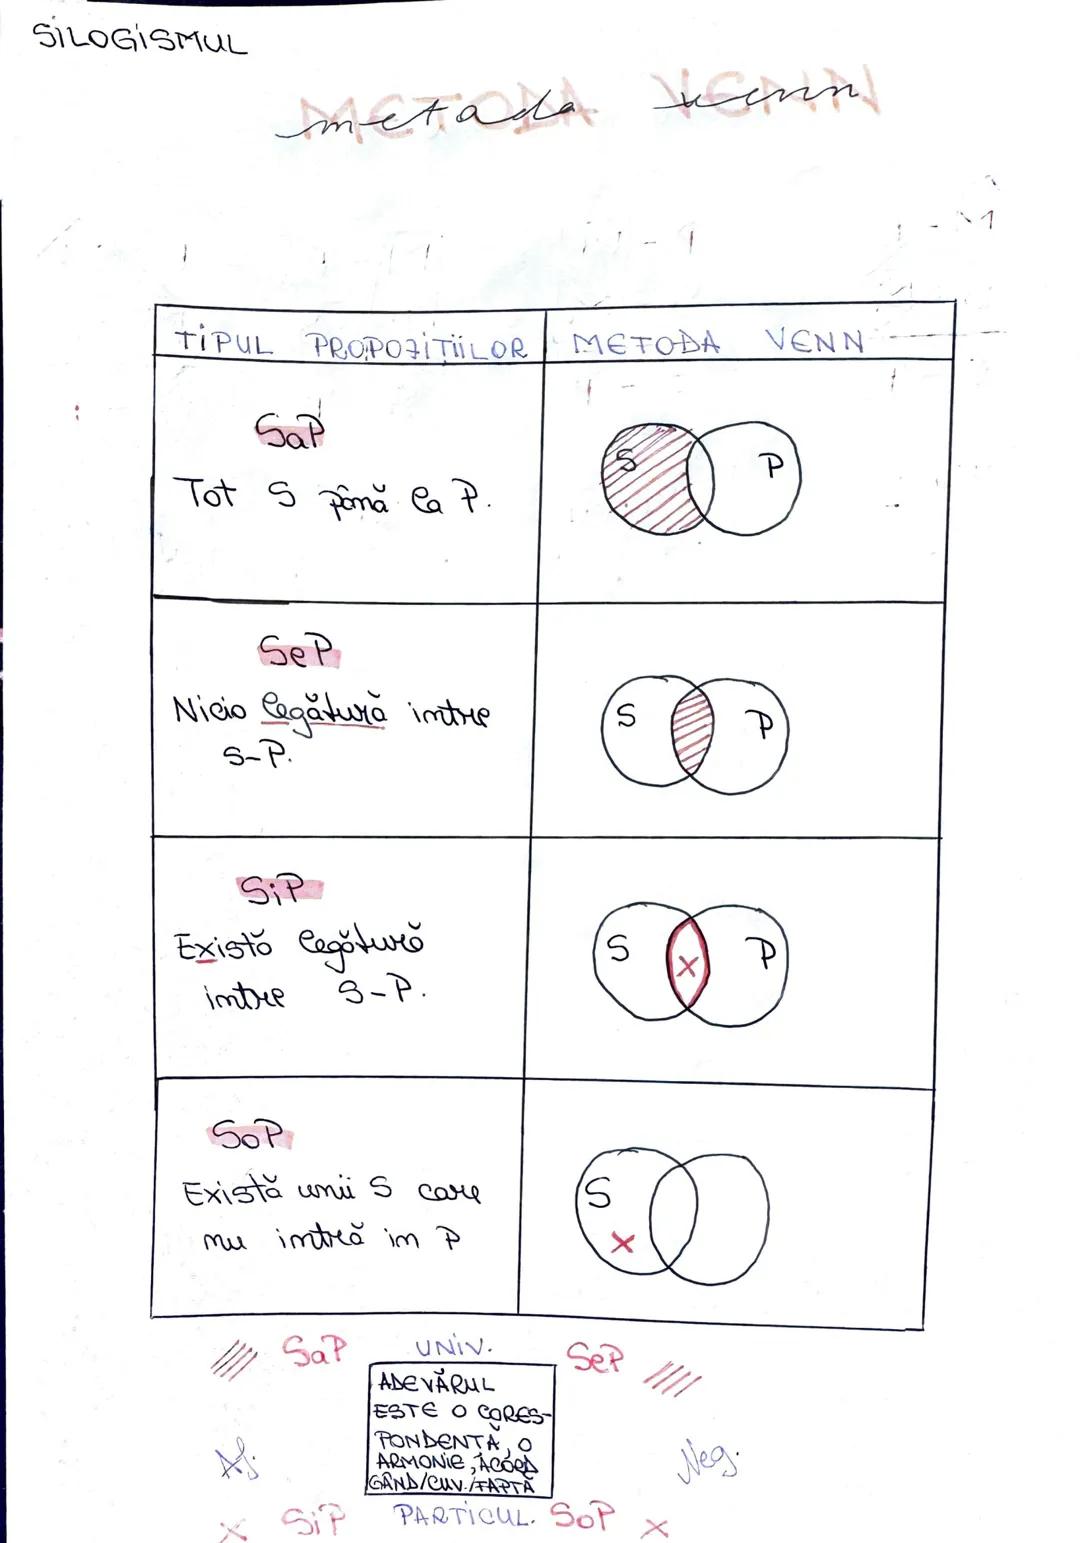 SILOGISMUL
METODA VENN
metoda venn
TIPUL PROPOZIȚIILOR METODA VENN
SaP
Tot S până la P.
S P
SeP
Nicio legătură intre
S-P.
S P
SiP
Există legătură
intre S-P.
S X P
SoP
Există unii S care
nu intră in P
S
X
SaP UNIV. SeP
ADEVĂRUL
ESTE O CORES-
PONDENTĂ, O
ARMONIE, ACORD
GÂND/CUV./FAPTĂ
Af. Neg.
X SiP PARTICUL. SoP X